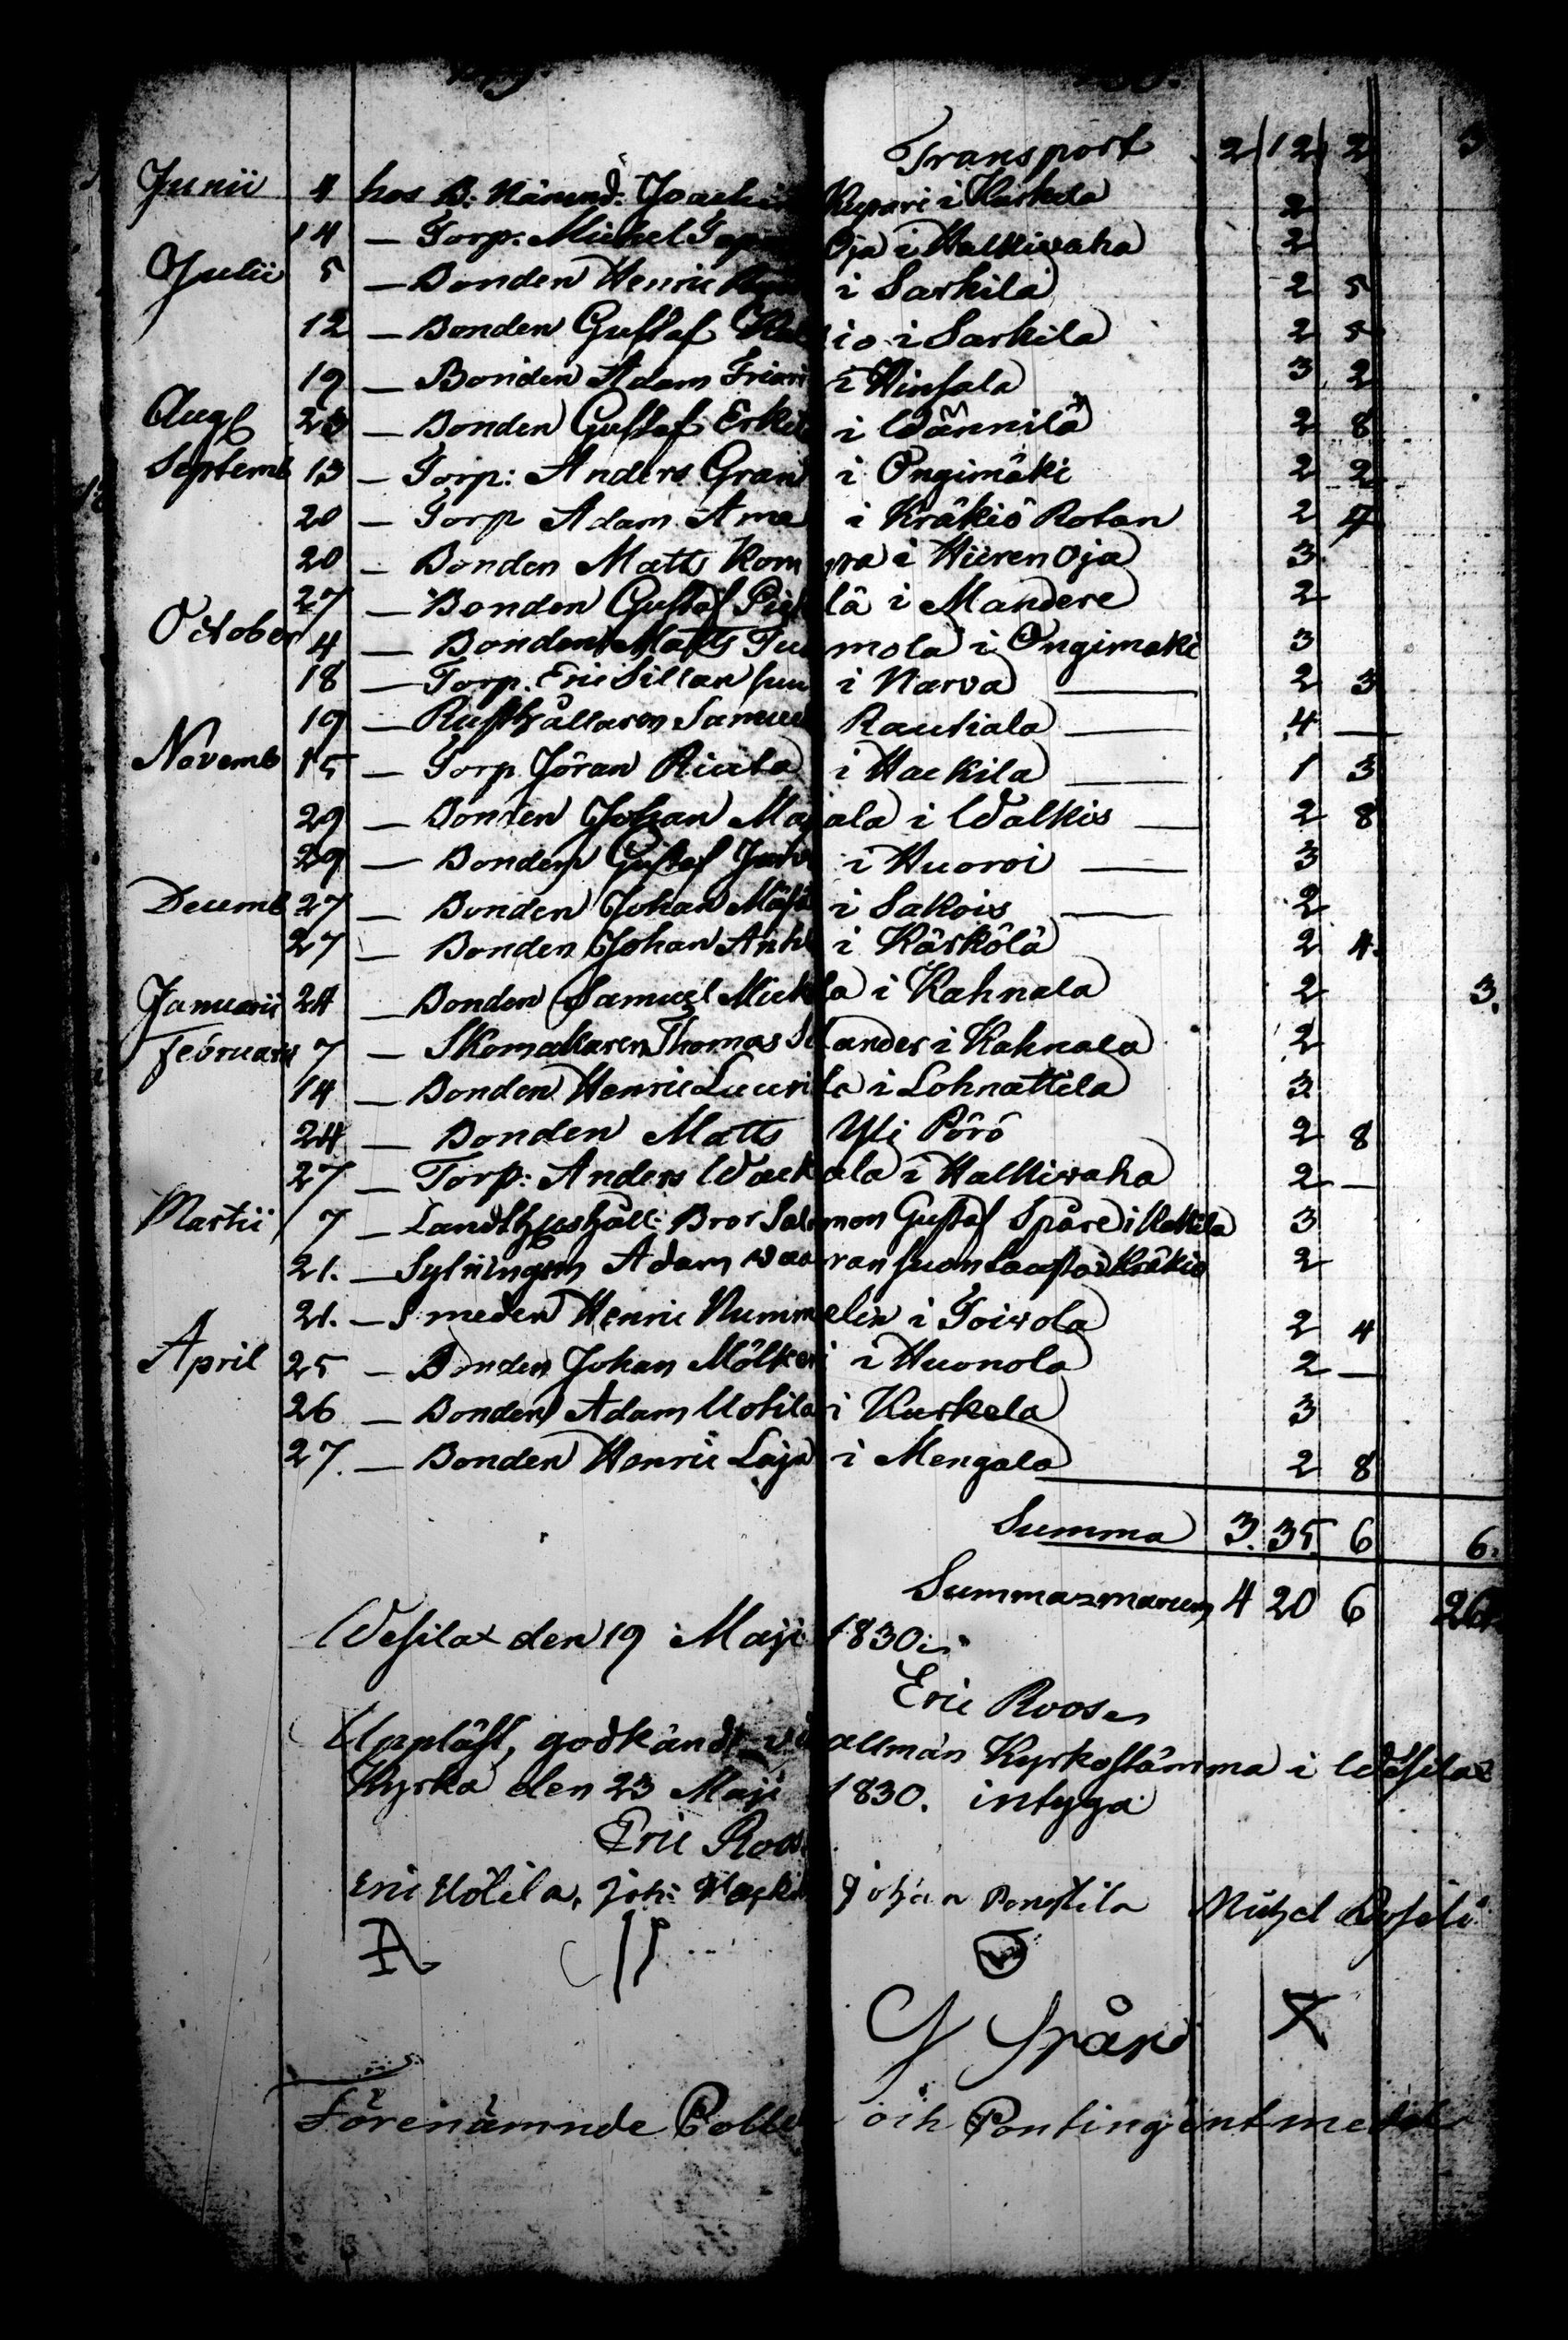 Transport 2 12 2 3
Junii 4 hos B: Nämnd: Joachim Kupari i Kuskela 2
14 — Torp: Michel Oja i Halkiwaha 2
Julii 5 — Bonden Henric i Sarkila 2 5
12 — Bonden Gustaf i Sarkila 2 5
19 — Bonden Adam Friari i Hinsala 3 2
Aug 23 — Bonden Gustaf Erkilä i Wännilä 2 8
Septemb 13 — Torp: Anders Gran i Ongimäki 2 2
20 — Torp Adam i Kräkiö Rotan 2 4
20 — Bonden Matts i Hiiren Oja 3
27 — Bonden Gustaf lä i Mandere 2
October 4 — Bonden Matts Tuomola i Ongimäki 3
18 — Torp. Eric Sillansuu i Narva — 2 3
19 — Rusthållaren Samuel Rautiala — 4 —
Novemb 15 — Torp Jöran i Hackila — 1 3
29 — Bonden Johan Majala i Walkis — 2 8
29 — Bonden Gustaf i Huoroi — 3
Decemb 27 — Bonden Johan i Sakois — 2
27 — Bonden Johan i Kärkölä 2 4.
Januarii 24 — Bonden Samuel Mickola i Kahnala 2 3.
Februarii 7 — Skomakaren Thomas Selander i Kahnala 2
14 — Bonden Henric Luurila i Lohnattila 3
24 — Bonden Matts Yli Pörö 2 8
27 — Torp: Anders Wackala i Halkiwaha 2 —
Martii 7 — Bror Salomon Gustaf Spåre i 3
21. — Sytningen Adam i Kräkiö 2
21. — Smeden Henric Nummelin i Toivola 2 4
April 25 — Bonden Johan Mölkeri i Huonola 2 —
26 — Bonden Adam Uotila i Kuskela 3
27. — Bonden Henric Laja i Mengala 2 8
Summa 3. 35. 6 6.
Summa summarum 4 20 6 26
Wesilax den 19 Maji 1830.
Eric Roos
Uppläst, godkändt vid allmän Kyrkostämma i Wesilax
Kyrka den 23 Maji 1830. intyga
Eric Roos
Eric Uotila, Joh: Johan Ponsila Michel
A
G Spåre X
Förenämnde och Contingent medel